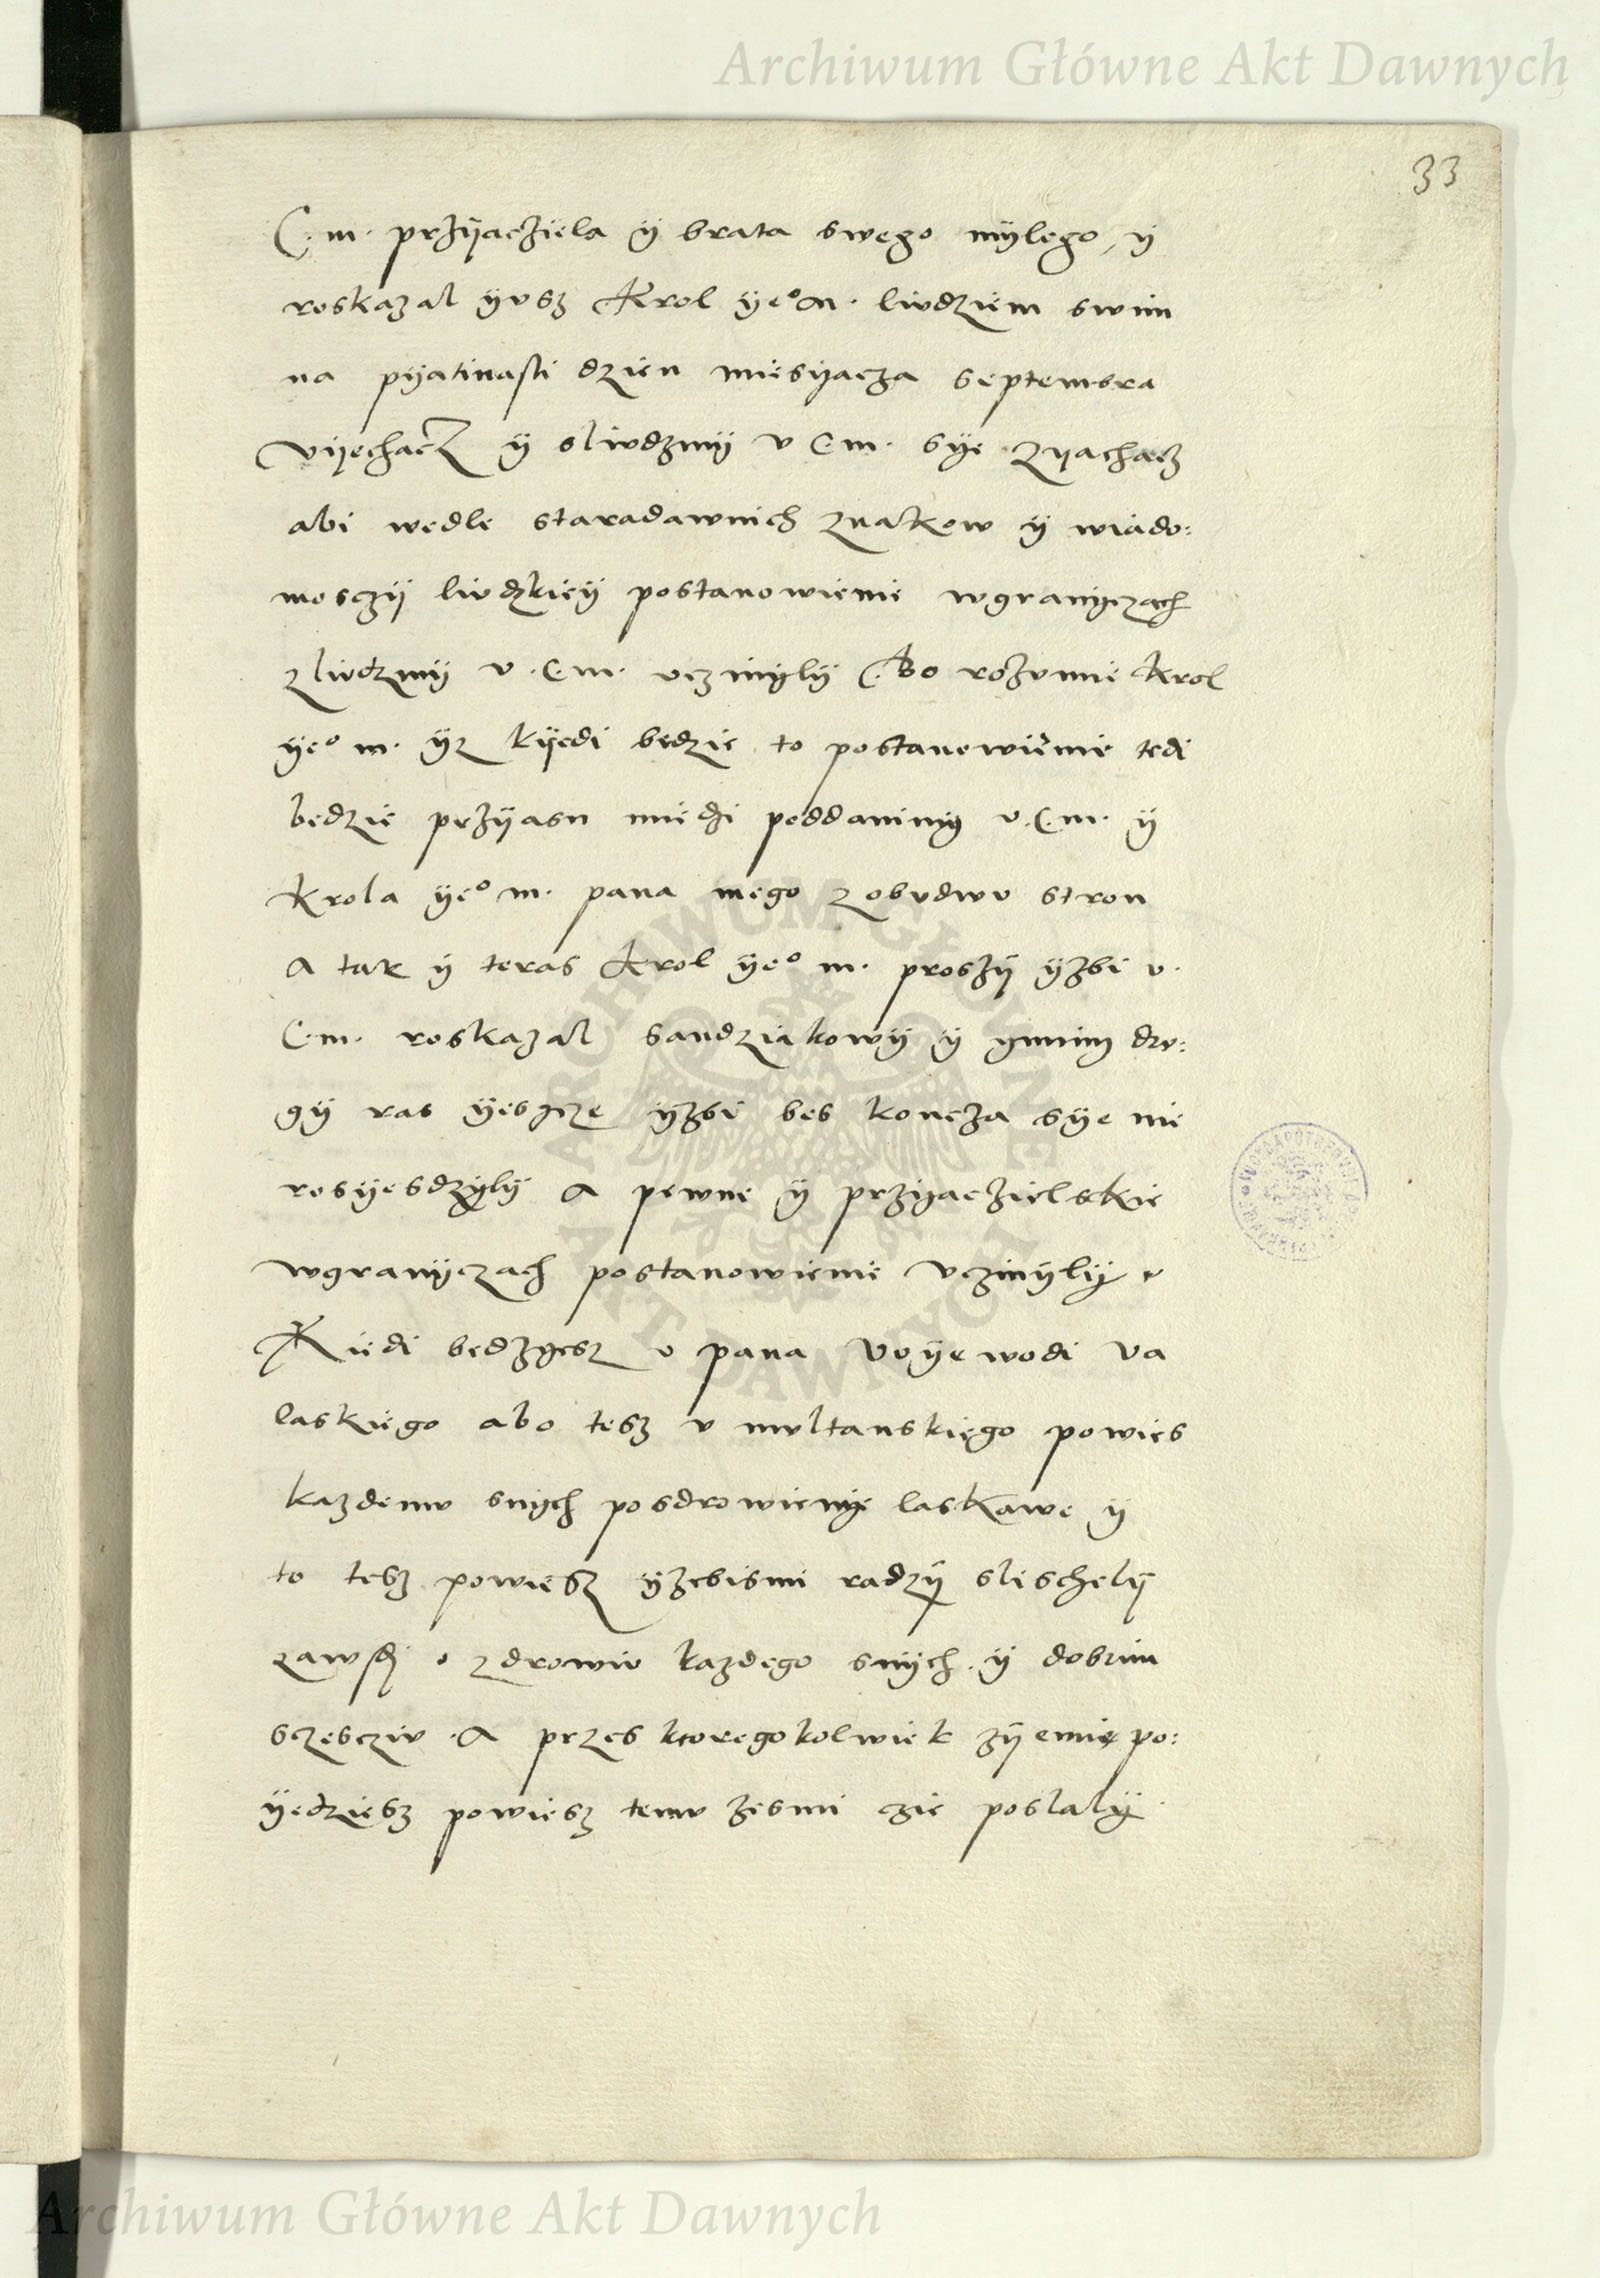 Archiwum Główne Akt Dawnych
33
C. m. przÿaczíela ÿ brata swego mÿlego, ÿ
roskazal ÿusz Krol ÿeº m. liudziem swim
na pÿatinasti dzien miesÿacza septembra
vÿechacz ÿ sliudzmÿ v C m. sÿe zÿachacz
abi wedle staradawnich znakow ÿ wiado:
mosczÿ liudzkieÿ postanowienie wgranÿczach
z liudzmÿ v. C. m. vczinÿlÿ Bo rozumie Krol
ÿeº m. ÿz kÿedi bedzie to postanowienie tedi
bedzie przÿasn miedzi poddanimÿ v. C. m. ÿ
Krola ÿeº m. pana mego z obudwu stron
A tak ÿ teras Krol ÿeº m. proszÿ ÿzbi v.
C. m. roskazal sandziakowÿ ÿ ÿnnim dru:
gÿ ras ÿescze ÿzbi bes koncza sÿe nie
rosÿesdzÿlÿ A pewne ÿ przÿaczielskie
wgranÿczach postanowienie vczinÿlÿ
Kiedi bedzÿesz v pana Voÿewodi Va
laskiego abo tesz v multanskiego powies
kazdemu snÿch posdrowienÿe laskawe ÿ
to tesz powiesz ÿzebismi radzÿ slischelÿ
zawsdi o zdrowiu kazdego snÿch. ÿ dobrim
sczescziu . A przes ktoregokolwiek zÿemie po:
ÿedziesz powiesz temu zesmi czie poslalÿ.
ARCHIWUM GŁÓWNE
AKT DAWNYCH
Archiwum Główne Akt Dawnych